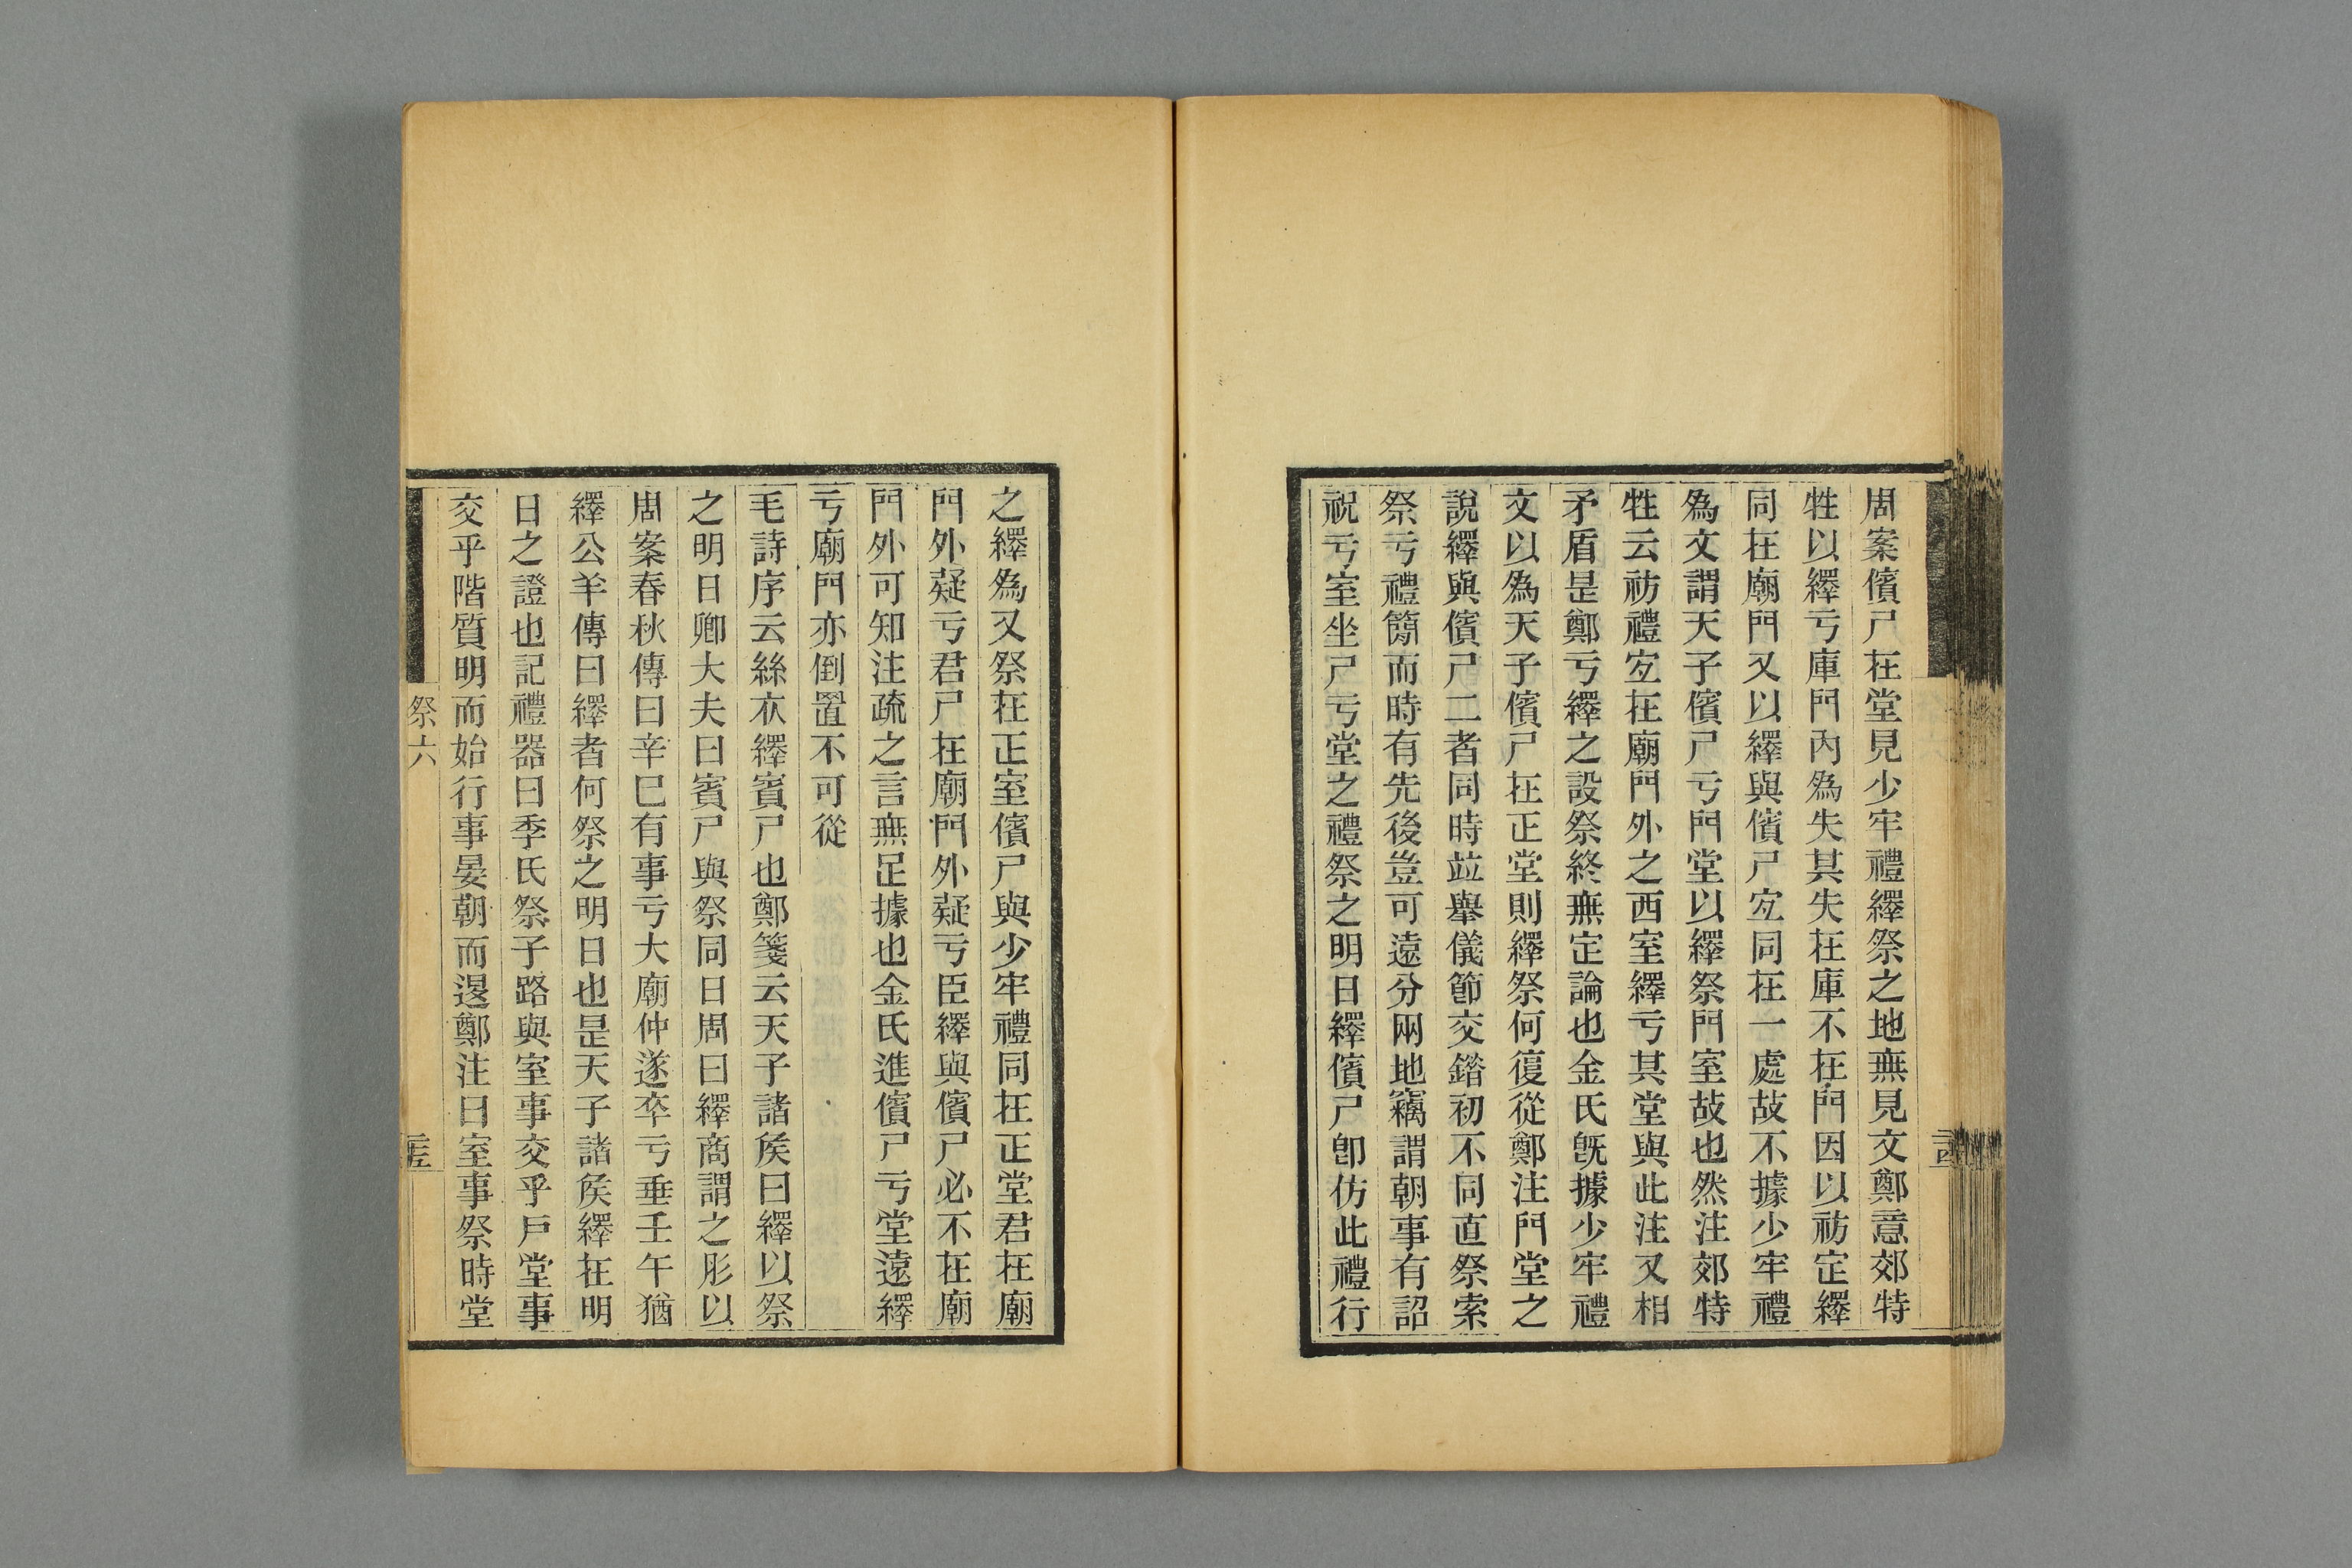 周案儐尸在堂見少牢禮繹祭之地無見文鄭意郊特
牲以繹亏庫門內爲失其失在庫不在門因以祊定繹
同在廟門又以繹與儐尸宐同在一處故不據少牢禮
爲文謂天子儐尸亏門堂以繹祭門室故也然注郊特
牲云祊禮宐在廟門外之西室繹亏其堂與此注又相
矛盾是鄭亏繹之設祭終無定論也金氏旣據少牢禮
文以爲天子儐尸在正堂則繹祭何復從鄭注門堂之
說繹與儐尸二者同時竝舉儀節交錯初不同直祭索
祭亏禮簡而時有先後豈可遠分兩地竊謂朝事有詔
祝亏室坐尸亏堂之禮祭之明日繹儐尸卽仿此禮行
之繹爲又祭在正室儐尸與少牢禮同在正堂君在廟
門外疑亏君尸在廟門外疑亏臣繹與儐尸必不在廟
門外可知注疏之言無足據也金氏進儐尸亏堂遠繹
亏廟門亦倒置不可從
毛詩序云絲衣繹賓尸也鄭箋云天子諸矦曰繹以祭
之明日卿大夫曰賓尸與祭同日周曰繹商謂之肜以
周案春秋傳曰辛巳有事亏大廟仲遂卒亏垂壬午猶
繹公羊傳曰繹者何祭之明日也是天子諸矦繹在明
日之證也記禮器曰季氏祭子路與室事交乎戶堂事
交乎階質明而始行事晏朝而退鄭注曰室事祭時堂
祭六